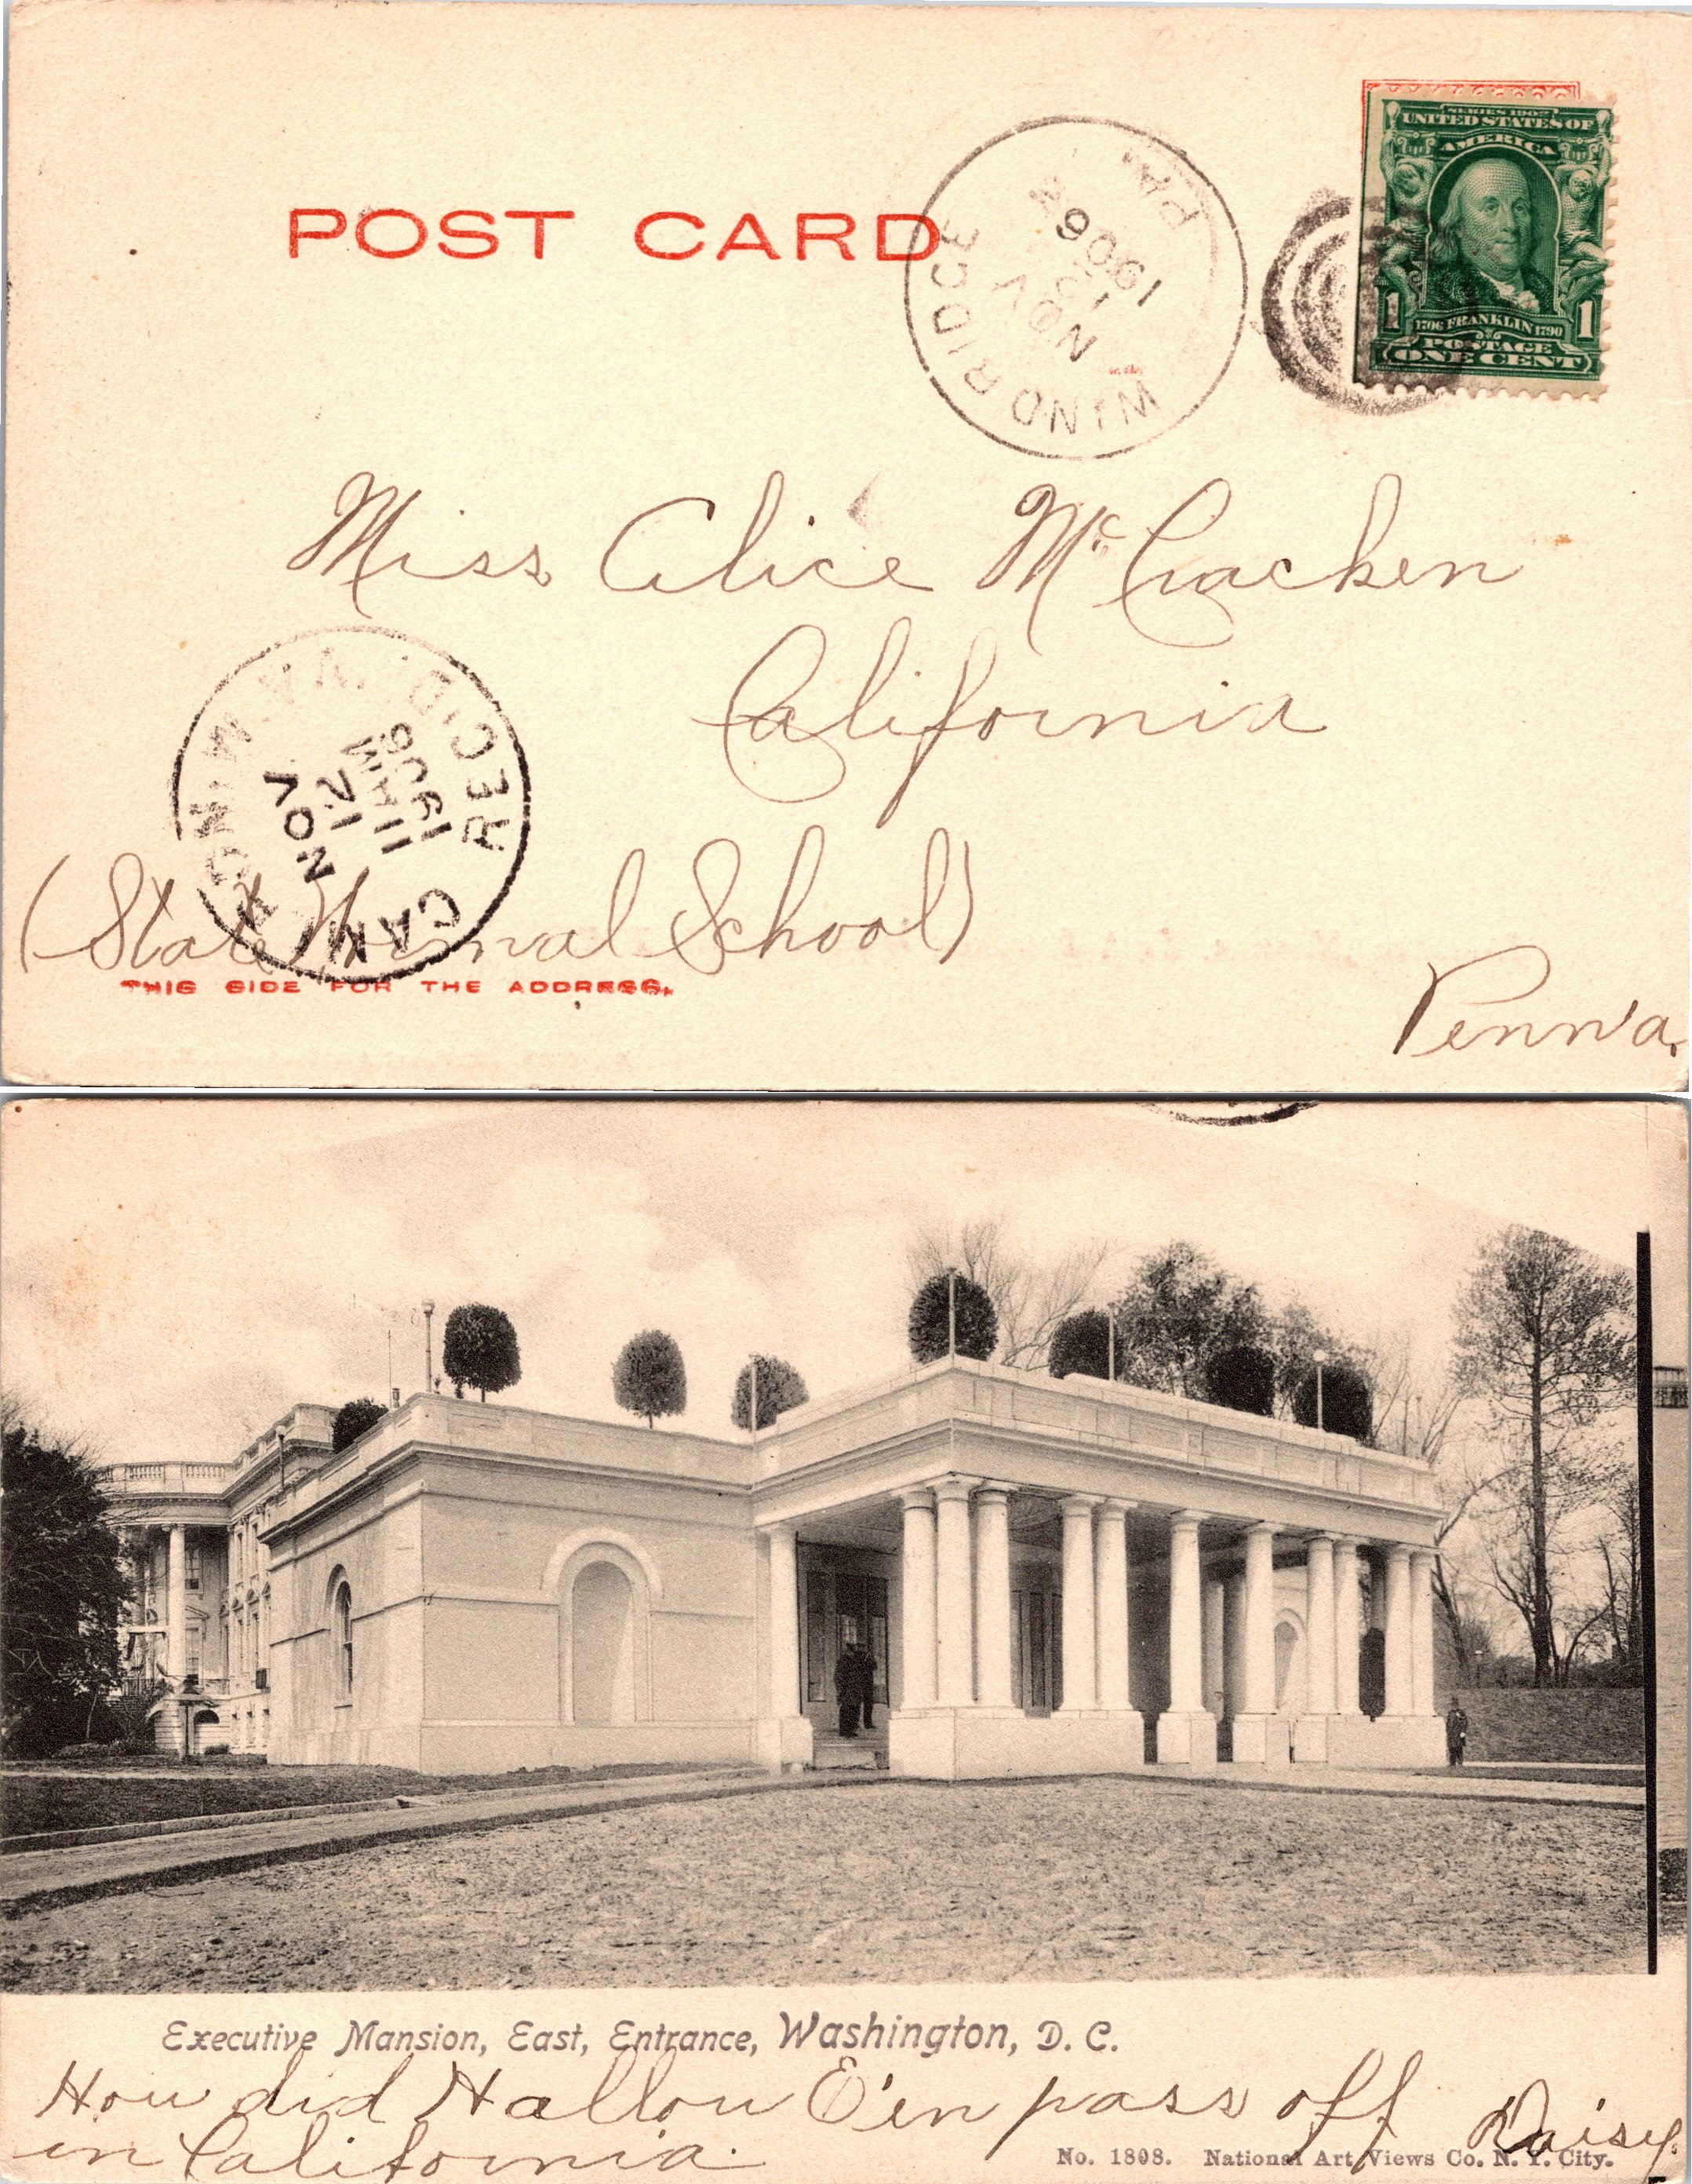 POST CARD
SERIES 1902
UNITED STATES OF
AMERICA
1 1706 FRANKLIN 1790 1
POSTAGE
ONE CENT
WIND RIDGE PA.
NOV
10
1906
Miss Alice McCracken
California
REC'D.
NOV
12
11 AM
1906
(State Normal School)
THIS SIDE FOR THE ADDRESS.
Penn'a.
Executive Mansion, East, Entrance, Washington, D. C.
How did Hallow E'en pass off
in California.
Daisy.
No. 1808. National Art Views Co. N. Y. City.